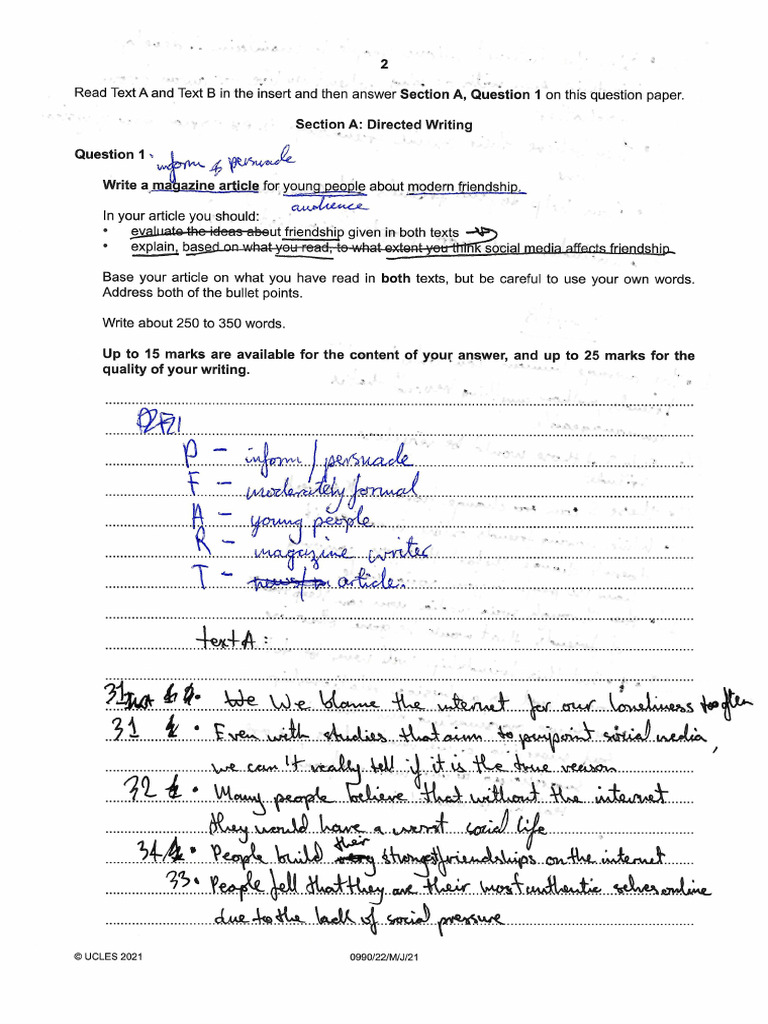 2
Read Text A and Text B in the insert and then answer Section A, Question 1 on this question paper.
Section A: Directed Writing
Question 1
inform & persuade
Write a magazine article for young people about modern friendship.
audience
In your article you should:
• evaluate the ideas about friendship given in both texts
• explain, based on what you read, to what extent you think social media affects friendship.
Base your article on what you have read in both texts, but be careful to use your own words.
Address both of the bullet points.
Write about 250 to 350 words.
Up to 15 marks are available for the content of your answer, and up to 25 marks for the
quality of your writing.
P - inform / persuade
F - moderately formal
A - young people
R - magazine writer
T - article.
text A:
31 • We blame the internet for our loneliness too often
31 • Even with studies that aim to pinpoint social media,
we can't really tell if it is the true reason
32 • Many people believe that without the internet
they would have a worst social life
34 • People build their strongest friendships on the internet
33. People fell that they are their most authentic selves online
due to the lack of social pressure
© UCLES 2021
0990/22/M/J/21